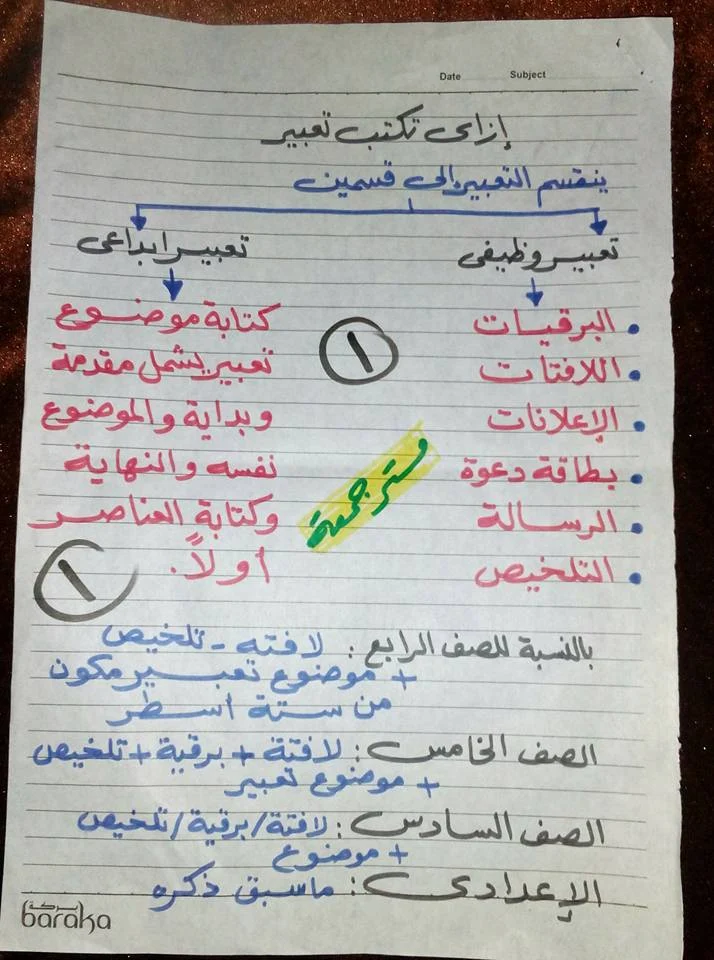 Date Subject
إزاى تكتب تعبير
ينقسم التعبير إلى قسمين
تعبير وظيفى
تعبير ابداعى
• البرقيات
• اللافتات
• الإعلانات
• بطاقة دعوة
• الرسالة
• التلخيص
١
كتابة موضوع
تعبير يشمل مقدمة
وبداية والموضوع
نفسه والنهاية
وكتابة العناصر
أولاً.
١
مستر جمعة
بالنسبة للصف الرابع: لافته - تلخيص
+ موضوع تعبير مكون
من ستة أسطر
الصف الخامس: لافتة + برقية + تلخيص
+ موضوع تعبير
الصف السادس: لافتة/برقية/تلخيص
+ موضوع
الإعدادى: ماسبق ذكره
بركة
baraka